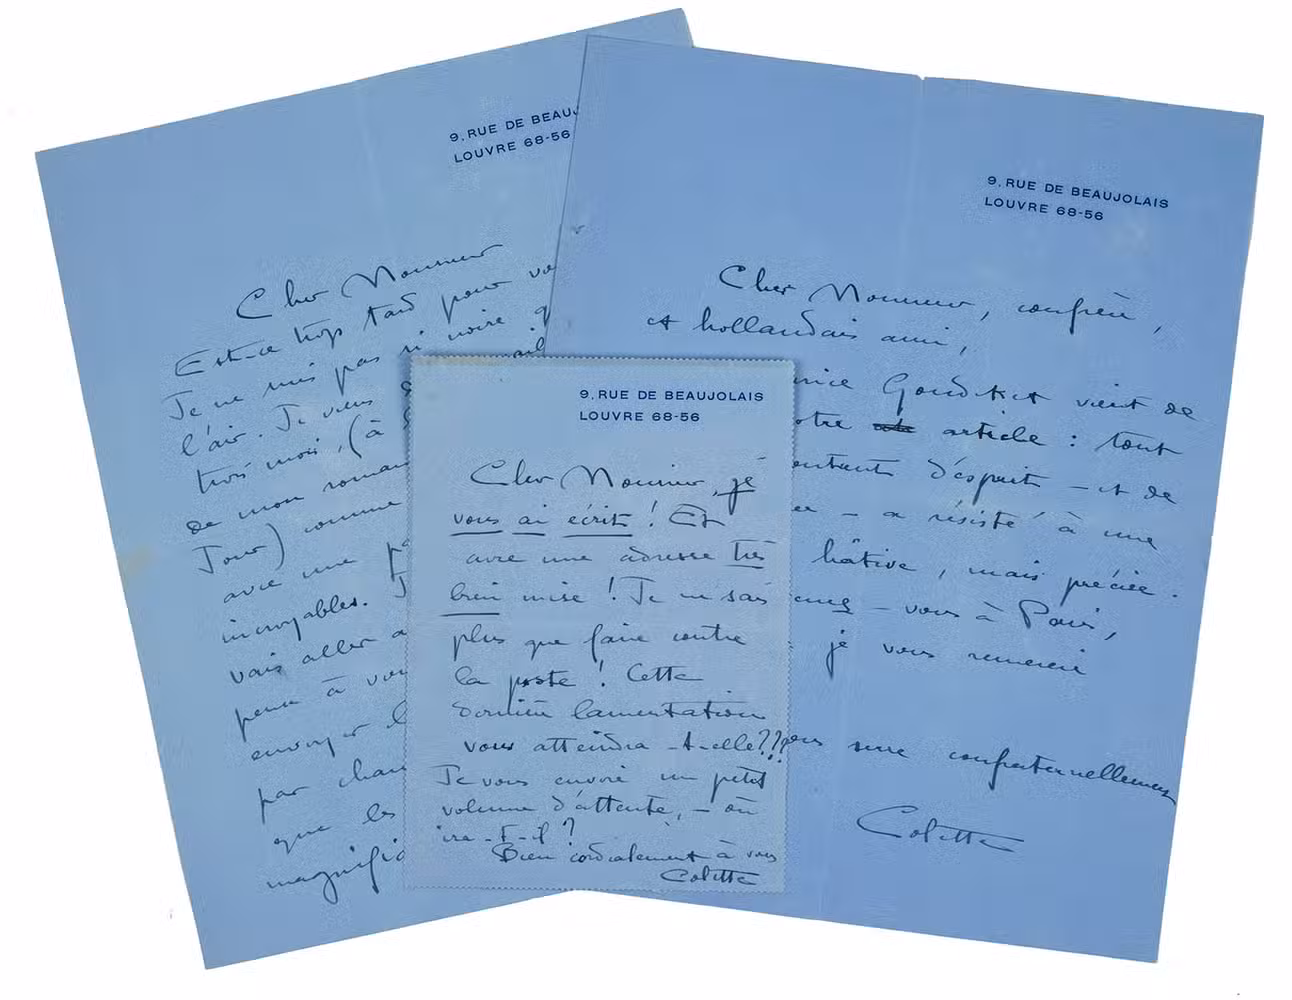 9. RUE DE BEAUJ
LOUVRE 68-56
Cher Monsieur
Est-ce trop tard pour
Je ne suis pas si noire
l'air. Je vous
trois mois, (à
de mon roman
Jour) comme
avec une
incroyables. J
vais aller
peur à vou
envoyer
par
que les
magnifi
9. RUE DE BEAUJOLAIS
LOUVRE 68-56
Cher Monsieur, confrère,
et hollandais ami,
Goudeket vient de
article : tout
d'esprit - et de
- a résisté à une
hâtive, mais précise.
- vous à Paris,
je vous remercie
serre confraternellement
Colette
9. RUE DE BEAUJOLAIS
LOUVRE 68-56
Cher Monsieur, je
vous ai écrit ! Et
avec une adresse très
bien mise ! Je ne sais
plus que faire contre
la poste ! Cette
dernière lamentation
vous atteindra-t-elle???
Je vous envoie un petit
volume d'attente, - où
ira-t-il ?
Bien cordialement à vous
Colette